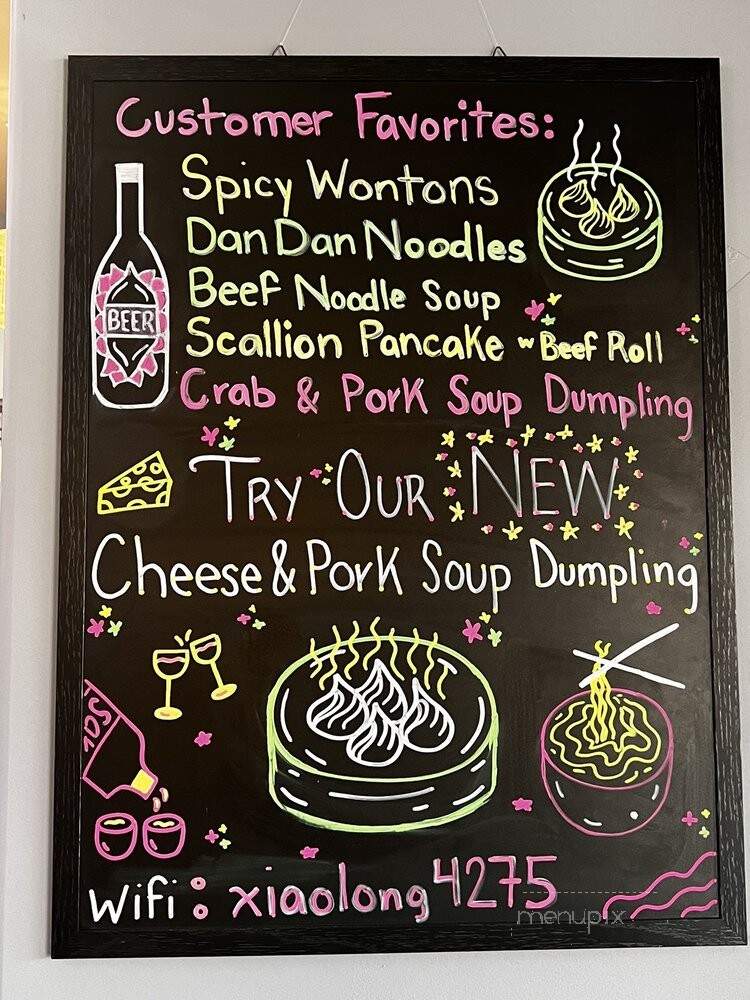 Customer Favorites:
Spicy Wontons
Dan Dan Noodles
Beef Noodle Soup
Scallion Pancake w Beef Roll
Crab & Pork Soup Dumpling
BEER
TRY OUR NEW
Cheese & Pork Soup Dumpling
SOJU
wifi: xiaolong4275
menupix